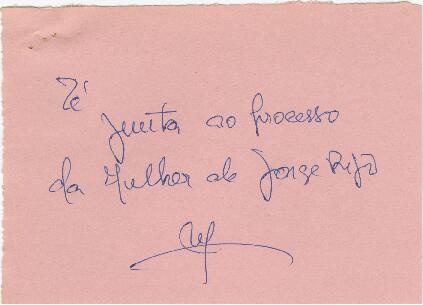 Zé
junta ao processo
da Mulher de Jorge Rijo